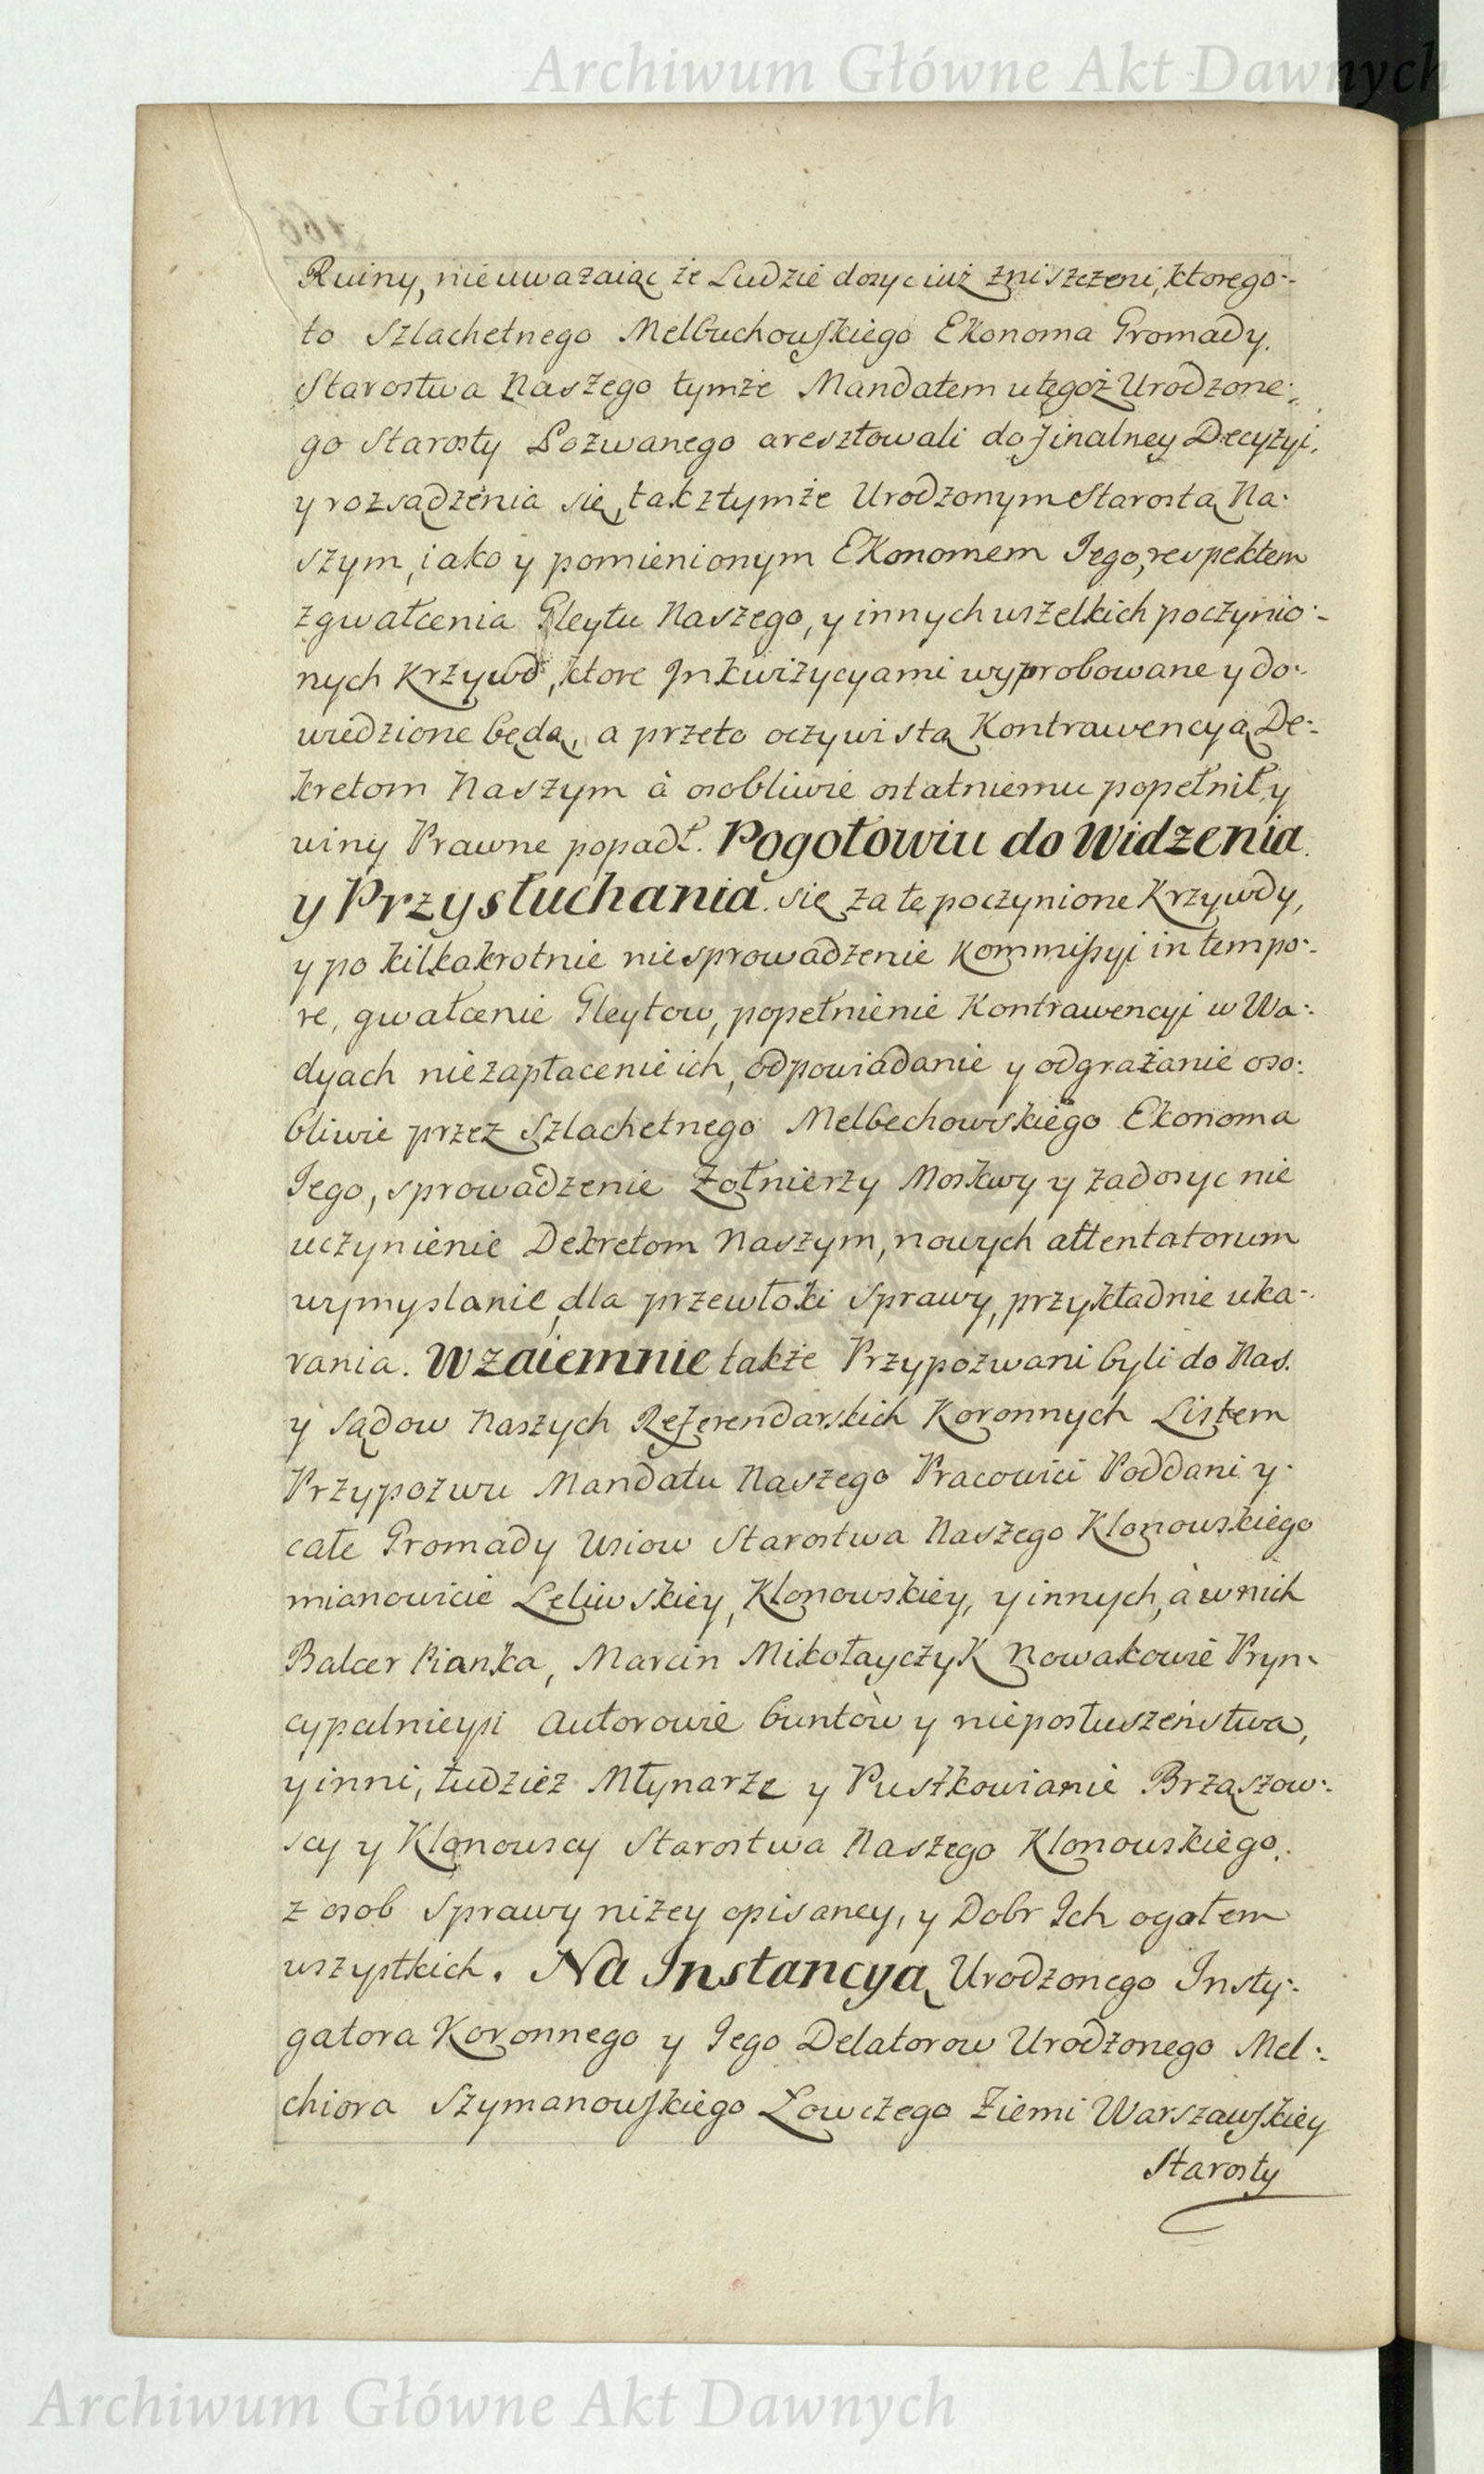 Archiwum Główne Akt Dawnych
Ruiny, nieuwazaiąc że Ludzie dosyc iuż zniszczeni, ktorego-
to Szlachetnego Melbuchowskiego Ekonoma Gromady
Starostwa Naszego tymże Mandatem u tegoż Urodzone-
go Starosty Pozwanego aresztowali do finalney Decyzyi,
y rozsądzenia się, tak z tymże Urodzonym Starostą Na-
szym, iako y pomienionym Ekonomem Jego, respektem
zgwałcenia Gleytu Naszego, y innych wszelkich poczynio-
nych Krzywd, ktore Inkwizycyami wyprobowane y do-
wiedzione będą, a przeto oczywistą Kontrawencyą De-
kretom Naszym à osobliwie ostatniemu popełnił, y
winy Prawne popadł. Pogotowiu do Widzenia
y Przysłuchania się za te poczynione Krzywdy,
y po kilkakrotnie niesprowadzenie Kommissyi in tempo-
re, gwałcenie Gleytow, popełnienie Kontrawencyi w Wa-
dyach niezapłacenie ich, odpowiadanie y odgrażanie oso-
bliwie przez Szlachetnego Melbechowskiego Ekonoma
Jego, sprowadzenie Żołnierzy Moskwy y zadosyc nie
uczynienie Dekretom Naszym, nowych attentatorum
wymyslanie, dla przewłoki Sprawy, przykładnie uka-
rania. Wzaiemnie także Przypozwani byli do Nas
y Sądow Naszych Referendarskich Koronnych Listem
Przypozwu Mandatu Naszego Pracowici Poddani y
całe Gromady Wsiow Starostwa Naszego Klonowskiego
mianowicie Leliwskiey, Klonowskiey, y innych, à w nich
Balcer Pianka, Marcin Mikołayczyk Nowakowie Pryn-
cypalnieysi Autorowie buntòw y nieposłuszeństwa,
y inni, tudzież Młynarze y Pustkowianie Brząszow-
scy y Klonowscy Starostwa Naszego Klonowskiego.
z osob Sprawy niżey opisaney, y Dobr Ich ogołem
wszystkich. Na Instancyą Urodzonego Insty-
gatora Koronnego y Jego Delatorow Urodzonego Mel-
chiora Szymanowskiego Łowczego Ziemi Warszawskiey
Starosty
Archiwum Główne Akt Dawnych